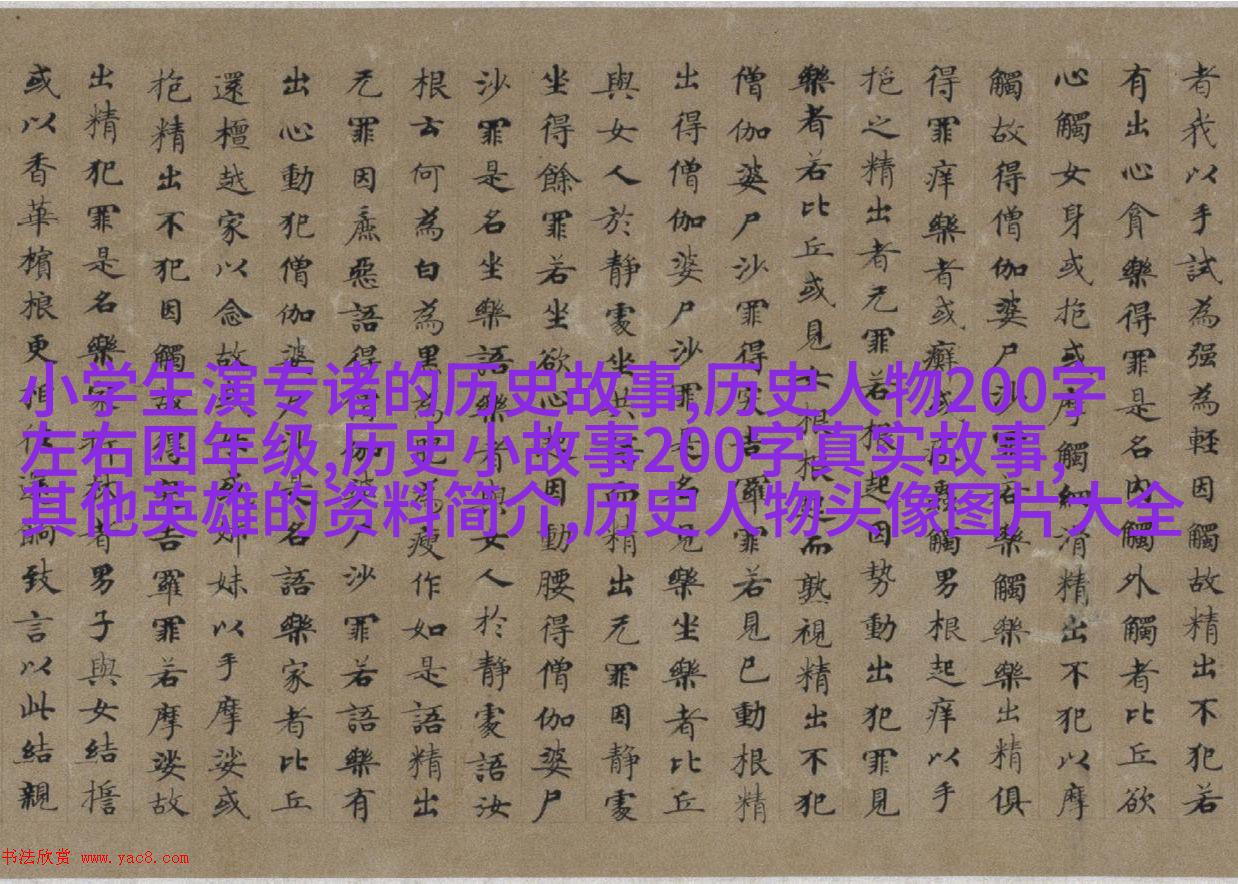 者我以手試為强為軽因觸故精出不犯若
有出心貪樂得罪是名内觸外觸者比丘欲
心觸女身或抱或摩觸細滑精出不犯以摩
觸故得僧伽婆尸沙罪若樂觸樂樂出精俱
得罪痒樂者或癬或觸男根起痒以手
抱之精出者无罪若根起因勢動出犯罪見
樂者若比丘或見女根根起而熟視精出不犯
僧伽婆尸沙罪得突吉羅罪若見已動根精
出得僧伽婆尸沙罪是名見樂坐樂者比丘
與女人於静處坐共語而精出无罪因静處
坐得餘罪若坐欲心起因動腰得僧伽婆尸
沙罪是名坐樂語樂者與女人於静處語汝
根云何為白為黑為肥為瘦作如是語精出
无罪因麁惡語得僧伽婆尸沙罪若語樂有
出心動犯僧伽婆尸沙是名語樂家者比丘
還檀越家以念故姊妹以手摩娑或
抱精出不犯因觸故得突吉羅罪若摩娑故
出精犯罪是名樂家折林者男子與女結誓
或以香華檳榔更相往還餉致言以此結親
小学生演专诸的历史故事,历史人物200字
左右四年级,历史小故事200字真实故事,
其他英雄的资料简介,历史人物头像图片大全
书法欣赏 www.yac8.com